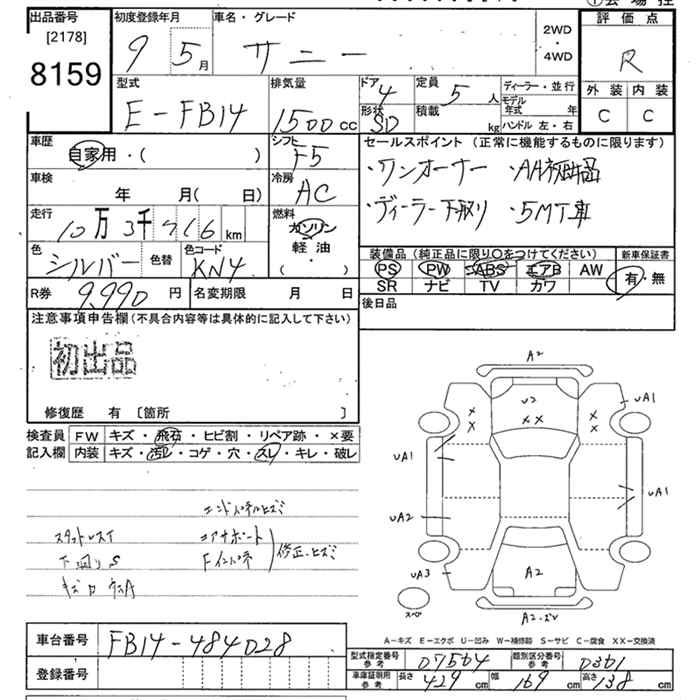 出品番号
[2178]
8159
初度登録年月
9 5月
車名・グレード
サニー
2WD
・
4WD
①会場控
評価点
R
外装 内装
C C
型式
E-FB14
排気量
1500cc
ドア
4
形状
SD
定員
5人
積載
kg
ディーラー・並行
モデル年式 年
ハンドル 左・右
車歴
自家用・( )
シフト
F5
車検
年 月( 日)
冷房
AC
走行
10万3千716km
燃料
ガソリン
軽油・
( )
色
シルバー
色替
色コード
KN4
R券
9.990円
名変期限 月 日
セールスポイント(正常に機能するものに限ります)
・ワンオーナー ・AA初出品
・ディーラー下取り ・5MT車
装備品(純正品に限り〇をつけてください)
PS PW ABS エアB AW
SR ナビ TV カワ
新車保証書
有・無
後日品
注意事項申告欄(不具合内容等は具体的に記入して下さい)
初出品
修復歴 有 [箇所 ]
検査員記入欄
FW キズ・飛石・ヒビ割・リペア跡・×要
内装 キズ・汚レ・コゲ・穴・スレ・キレ・破レ
エンドパネルヒズミ
スタットレスT
コアサポート
下回りS
Fインパネ
修正、ヒズミ
A2
U2
××
UA1
×
×
×
×
UA1
UA1
UA2
UA3
A2
A2
スペア
A-キズ E-エクボ U-凹み W-補修跡 S-サビ C-腐食 XX-交換済
車台番号
FB14-484028
登録番号
型式指定番号 参考
07564
類別区分番号 参考
0361
車庫証明用 参考
長さ 429cm
幅 169cm
高さ 138cm